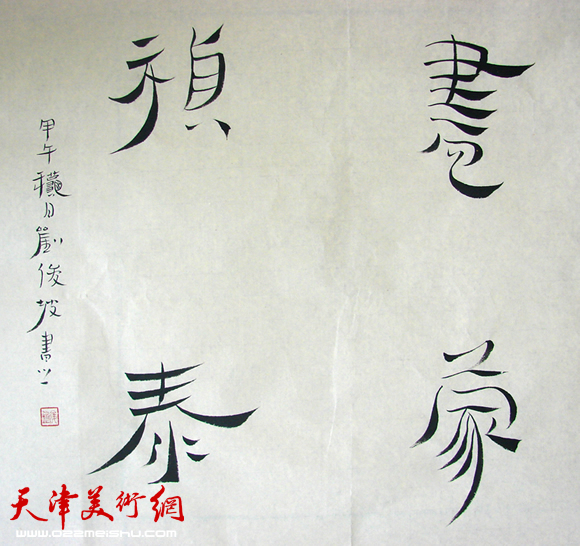 蒙
禎
泰
甲午龝日劉俊坡書之
天津美術網
www.022meishu.com